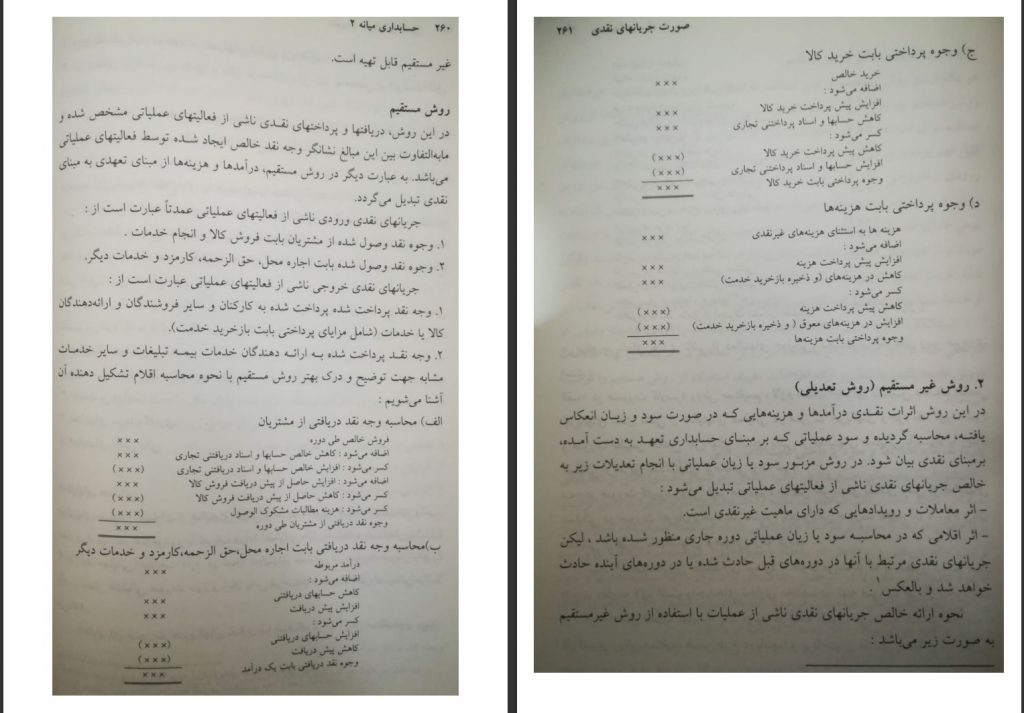 ۲۶۰ حسابداری میانه ۲
غیر مستقیم قابل تهیه است.
روش مستقیم
در این روش، دریافتها و پرداختهای نقدی ناشی از فعالیتهای عملیاتی مشخص شده و
مابه‌التفاوت بین این مبالغ نشانگر وجه نقد خالص ایجاد شده توسط فعالیتهای عملیاتی
می‌باشد. به عبارت دیگر در روش مستقیم، درآمدها و هزینه‌ها از مبنای تعهدی به مبنای
نقدی تبدیل می‌گردد.
جریانهای نقدی ورودی ناشی از فعالیتهای عملیاتی عمدتاً عبارت است از :
۱. وجوه نقد وصول شده از مشتریان بابت فروش کالا و انجام خدمات .
۲. وجوه نقد وصول شده بابت اجاره محل، حق الزحمه، کارمزد و خدمات دیگر.
جریانهای نقدی خروجی ناشی از فعالیتهای عملیاتی عبارت است از :
۱. وجه نقد پرداخت شده پرداخت شده به کارکنان و سایر فروشندگان و ارائه‌دهندگان
کالا یا خدمات (شامل مزایای پرداختی بابت بازخرید خدمت).
۲. وجه نقد پرداخت شده به ارائه دهندگان خدمات بیمه تبلیغات و سایر خدمات
مشابه جهت توضیح و درک بهتر روش مستقیم با نحوه محاسبه اقلام تشکیل دهنده آن
آشنا می‌شویم :
الف) محاسبه وجه نقد دریافتی از مشتریان
فروش خالص طی دوره ×××
اضافه می‌شود : کاهش خالص حسابها و اسناد دریافتنی تجاری ×××
کسر می‌شود : افزایش خالص حسابها و اسناد دریافتنی تجاری (×××)
اضافه می‌شود : افزایش حاصل از پیش دریافت فروش کالا ×××
کسر می‌شود : کاهش حاصل از پیش دریافت فروش کالا (×××)
کسر می‌شود : هزینه مطالبات مشکوک الوصول (×××)
وجوه نقد دریافتی از مشتریان طی دوره ×××
ب)محاسبه وجه نقد دریافتی بابت اجاره محل،حق الزحمه،کارمزد و خدمات دیگر
درآمد مربوطه ×××
اضافه می‌شود :
کاهش حسابهای دریافتنی ×××
افزایش پیش دریافت ×××
کسر می‌شود :
افزایش حسابهای دریافتنی (×××)
کاهش پیش دریافت (×××)
وجوه نقد دریافتی بابت یک درآمد ×××
صورت جریانهای نقدی ۲۶۱
ج) وجوه پرداختی بابت خرید کالا
خرید خالص ×××
اضافه می‌شود :
افزایش پیش پرداخت خرید کالا ×××
کاهش حسابها و اسناد پرداختنی تجاری ×××
کسر می‌شود :
کاهش پیش پرداخت خرید کالا (×××)
افزایش حسابها و اسناد پرداختنی تجاری (×××)
وجوه پرداختی بابت خرید کالا ×××
د) وجوه پرداختی بابت هزینه‌ها
هزینه ها به استثنای هزینه‌های غیرنقدی ×××
اضافه می‌شود :
افزایش پیش پرداخت هزینه ×××
کاهش در هزینه‌های (و ذخیره بازخرید خدمت) ×××
کسر می‌شود :
کاهش پیش پرداخت هزینه (×××)
افزایش در هزینه‌های معوق ( و ذخیره بازخرید خدمت) (×××)
وجوه پرداختی بابت هزینه‌ها ×××
۲. روش غیر مستقیم (روش تعدیلی)
در این روش اثرات نقدی درآمدها و هزینه‌هایی که در صورت سود و زیان انعکاس
یافته، محاسبه گردیده و سود عملیاتی که بر مبنای حسابداری تعهد به دست آمده،
برمبنای نقدی بیان شود. در روش مزبور سود یا زیان عملیاتی با انجام تعدیلات زیر به
خالص جریانهای نقدی ناشی از فعالیتهای عملیاتی تبدیل می‌شود :
- اثر معاملات و رویدادهایی که دارای ماهیت غیرنقدی است.
- اثر اقلامی که در محاسبه سود یا زیان عملیاتی دوره جاری منظور شده باشد ، لیکن
جریانهای نقدی مرتبط با آنها در دوره‌های قبل حادث شده یا در دوره‌های آینده حادث
خواهد شد و بالعکس۱ .
نحوه ارائه خالص جریانهای نقدی ناشی از عملیات با استفاده از روش غیرمستقیم
به صورت زیر می‌باشد :